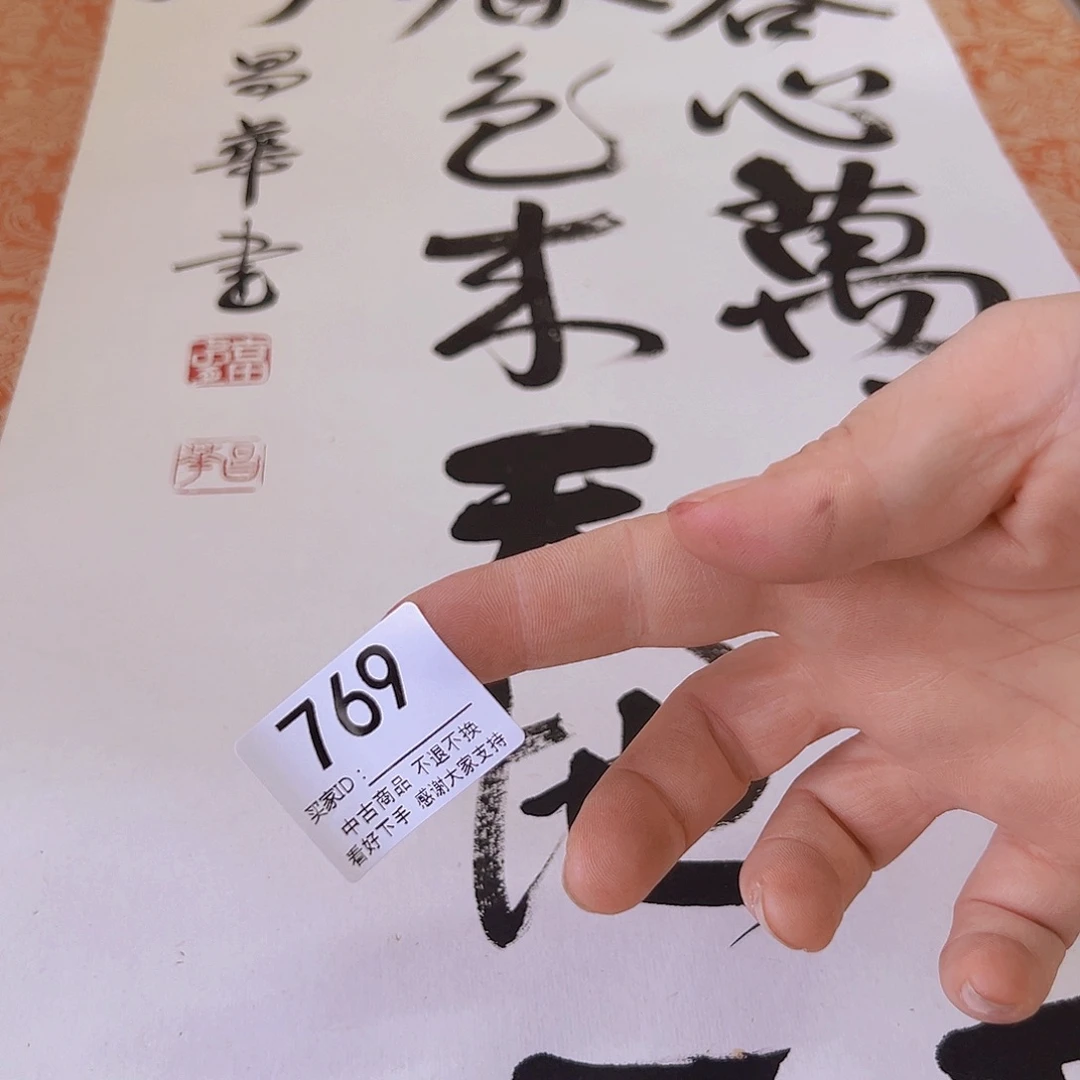 客心萬
春色来天地
昌華書
昌華
769
买家ID：
中古商品 不退不换
看好下手 感谢大家支持